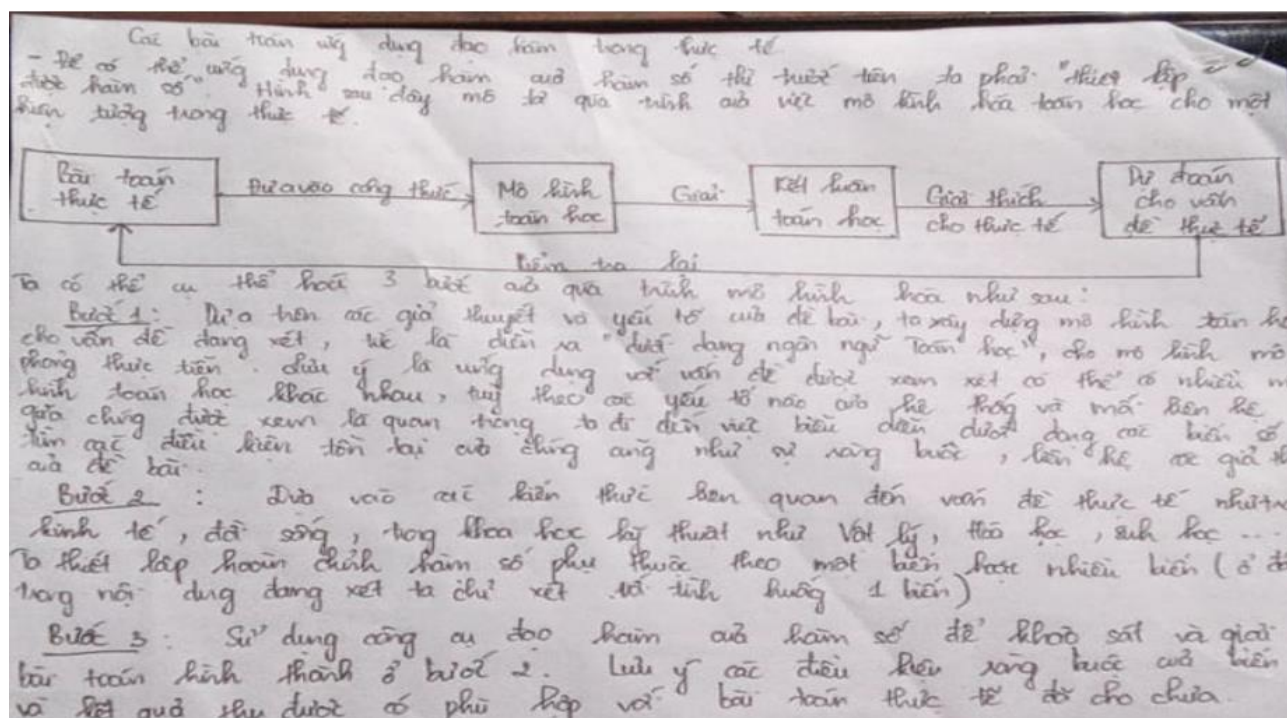 Các bài toán ứng dụng đạo hàm trong thực tế
- Để có thể ứng dụng đạo hàm của hàm số thì trước tiên ta phải "thiết lập
được hàm số". Hình sau đây mô tả quá trình của việc mô hình hóa toán học cho một
hiện tượng trong thực tế.
Bài toán
thực tế
Đưa vào công thức
Mô hình
toán học
Giải
Kết luận
toán học
Giải thích
cho thực tế
Dự đoán
cho vấn
đề thực tế
Kiểm tra lại
Ta có thể cụ thể hoá 3 bước của quá trình mô hình hóa như sau:
Bước 1: Dựa trên các giả thuyết và yếu tố của đề bài, ta xây dựng mô hình toán
cho vấn đề đang xét, tức là diễn ra "dưới dạng ngôn ngữ Toán học", cho mô hình mô
phỏng thực tiễn. Lưu ý là ứng dụng với vấn đề được xem xét có thể có nhiều
hình toán học khác nhau, tuỳ theo các yếu tố nào của hệ thống và mối liên hệ
giữa chúng được xem là quan trọng ta đi đến việc biểu diễn dưới dạng các biến số
tìm các điều kiện tồn tại của chúng cũng như sự ràng buộc, liên hệ các giả
của đề bài.
Bước 2: Dựa vào các kiến thức liên quan đến vấn đề thực tế như
kinh tế, đời sống, trong khoa học kỹ thuật như Vật lý, Hoá học, sinh học ...
Ta thiết lập hoàn chỉnh hàm số phụ thuộc theo một biến hoặc nhiều biến (ở
trong nội dung đang xét ta chỉ xét với tình huống 1 biến)
Bước 3: Sử dụng công cụ đạo hàm của hàm số để khảo sát và giải
bài toán hình thành ở bước 2. Lưu ý các điều kiện ràng buộc của biến
và kết quả thu được có phù hợp với bài toán thực tế đã cho chưa.